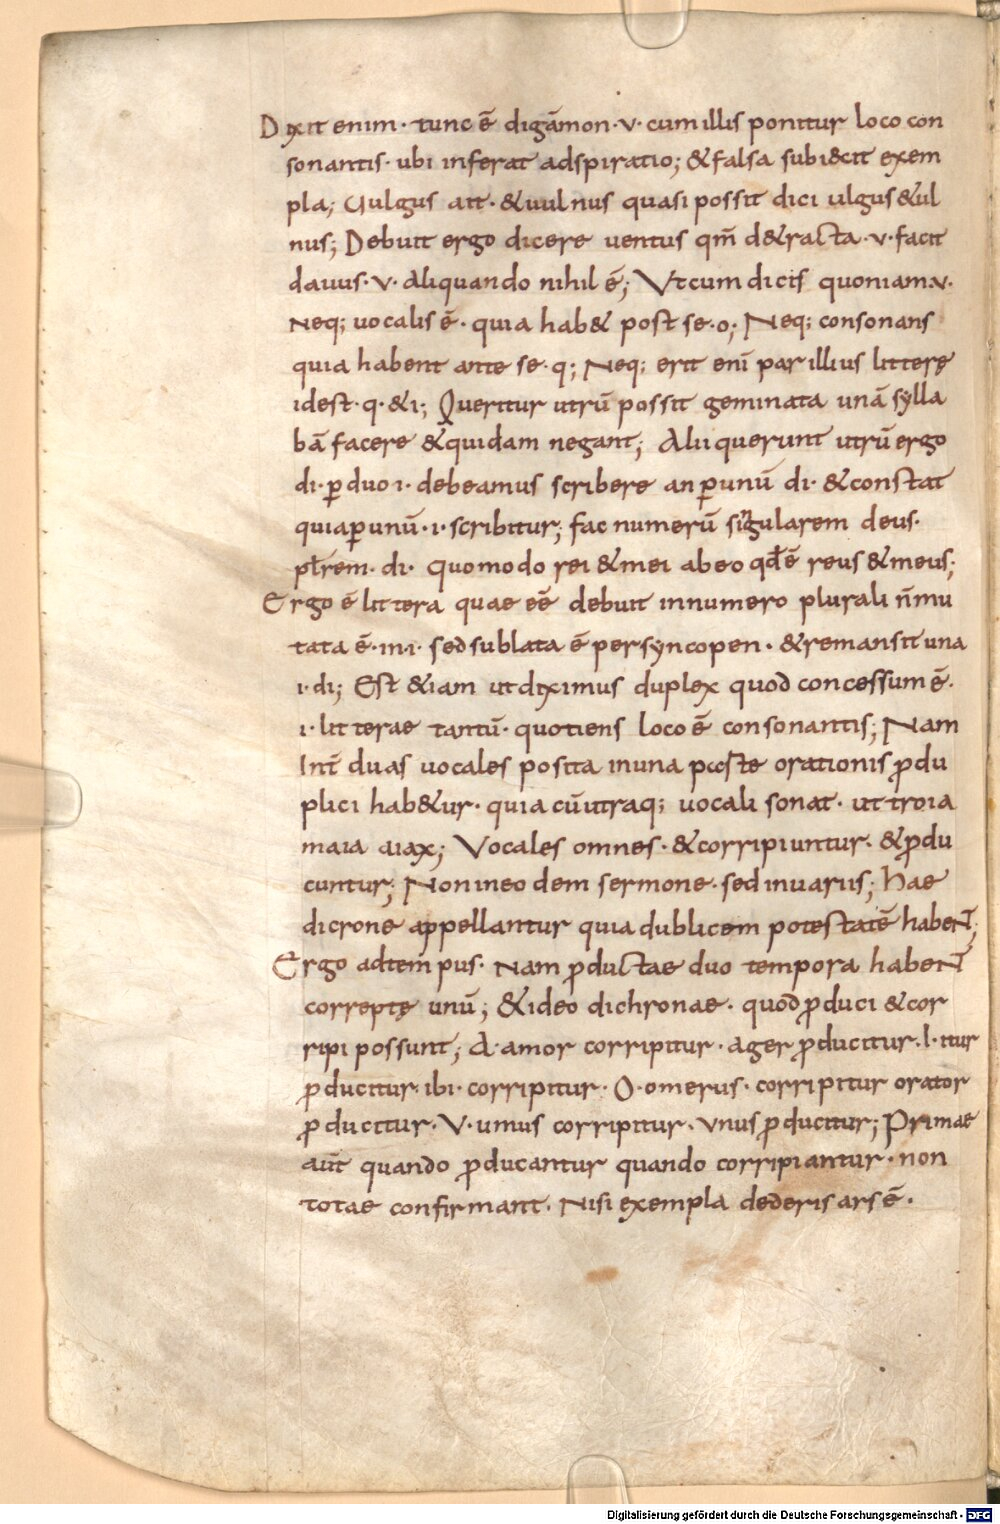 Dixit enim· tunc ē digāmon·v· cum illis ponitur loco con
sonantis· ubi inferat adspiratio; & falsa subiecit exem
pla; Uulgus ait· & uulnus quasi possit dici ulgus & ul
nus; Debuit ergo dicere uentus qm̄ d&racta·v·facit
dauus·v· aliquando nihil ē; Vt cum dicis quoniam·v·
Neq; uocalis ē· quia hab& post se·o; Neq; consonans
quia habent ante se·q; Neq; erit enī par illius litterę
idest·q·&i; Queritur utrū possit geminata unā sylla
bā facere & quidam negant; Alii querunt utrū ergo
di·ꝑ duo i· debeamus scribere an ꝑ unū di· & constat
quia ꝑ unū·i·scribitur; fac numerū singularem deus·
pl̄rem· di· quomodo rei & mei ab eo qđ ē reus & meus;
Ergo ē littera quae eē debuit in numero plurali n̄ mu
tata ē·in·i· sed sublata ē per syncopen· & remansit una
i·di; Est &iam ut diximus duplex quod concessum ē·
i·litterae tantū· quotiens loco ē consonantis; Nam
Int̄ duas uocales posita in una parte orationis ꝓ du
plici hab&ur· quia cū utraq; uocali sonat· ut troia
maia aiax; Vocales omnes· & corripiuntur· & ꝓdu
cuntur; Non in eodem sermone· sed in uariis; Hae
dicrone appellantur quia dublicem potestatē habent;
Ergo ad tempus· Nam ꝓductae duo tempora habent
correptę unū; & ideo dichronae· quod ꝓduci & cor
ripi possunt; A·amor corripitur· ager ꝓducitur·I·itur
ꝓducitur ibi· corripitur· O·omerus· corripitur orator
ꝓducitur· V·umus corripitur· vnus ꝓducitur; Primae
aūt quando ꝓducantur quando corripiantur· non
totae confirmant· Nisi exempla dederis ars ē·
Digitalisierung gefördert durch die Deutsche Forschungsgemeinschaft - DFG